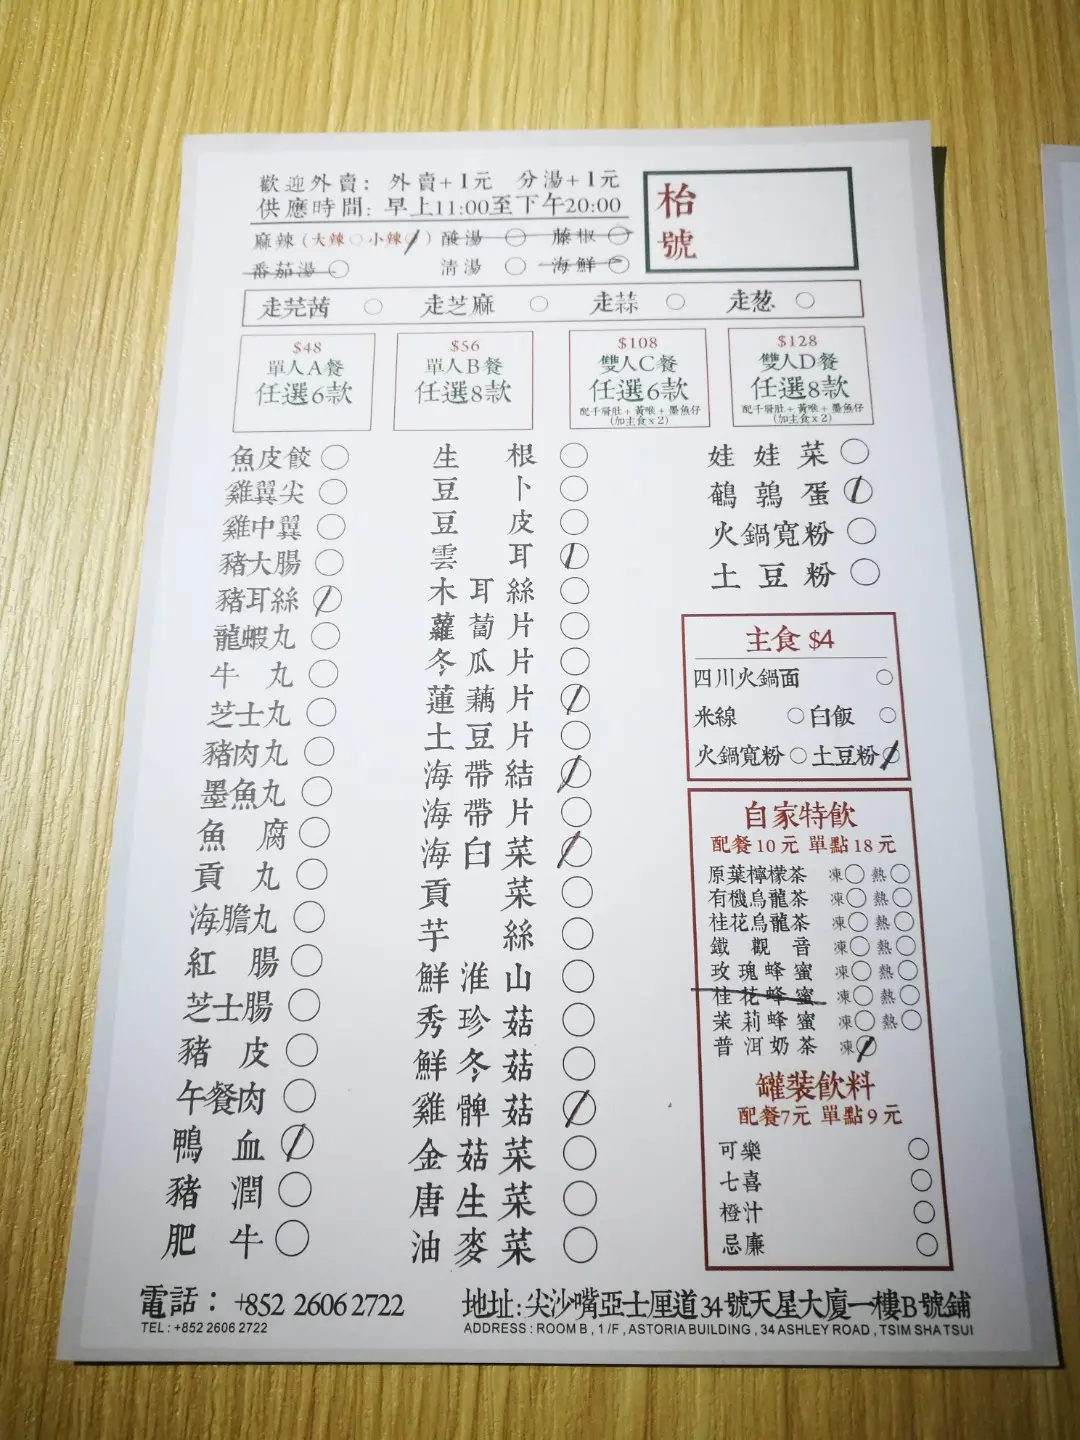 歡迎外賣： 外賣+1元 分湯+1元
供應時間: 早上11:00至下午20:00
枱號
麻辣 (大辣○小辣○) 酸湯 ○ 藤椒 ○
番茄湯 ○ 清湯 ○ 海鮮 ○
走芫茜 ○ 走芝麻 ○ 走蒜 ○ 走葱 ○
$48
單人A餐
任選6款
$56
單人B餐
任選8款
$108
雙人C餐
任選6款
配千層肚+黃喉+墨魚仔
(加主食x2)
$128
雙人D餐
任選8款
配千層肚+黃喉+墨魚仔
(加主食x2)
魚皮餃 ○
雞翼尖 ○
雞中翼 ○
豬大腸 ○
豬耳絲 ○
龍蝦丸 ○
牛丸 ○
芝士丸 ○
豬肉丸 ○
墨魚丸 ○
魚腐 ○
貢丸 ○
海膽丸 ○
紅腸 ○
芝士腸 ○
豬皮 ○
午餐肉 ○
鴨血 ○
豬潤 ○
肥牛 ○
生根 ○
豆卜 ○
豆皮 ○
雲耳 ○
木耳絲 ○
蘿蔔片 ○
冬瓜片 ○
蓮藕片 ○
土豆片 ○
海帶結 ○
海帶片 ○
海白菜 ○
貢菜 ○
芋絲 ○
鮮淮山 ○
秀珍菇 ○
鮮冬菇 ○
雞髀菇 ○
金菇菜 ○
唐生菜 ○
油麥菜 ○
娃娃菜 ○
鵪鶉蛋 ○
火鍋寬粉 ○
土豆粉 ○
主食 $4
四川火鍋面 ○
米線 ○ 白飯 ○
火鍋寬粉 ○ 土豆粉 ○
自家特飲
配餐10元 單點18元
原葉檸檬茶 凍○ 熱○
有機烏龍茶 凍○ 熱○
桂花烏龍茶 凍○ 熱○
鐵觀音 凍○ 熱○
玫瑰蜂蜜 凍○ 熱○
桂花蜂蜜 凍○ 熱○
茉莉蜂蜜 凍○ 熱○
普洱奶茶 凍○
罐裝飲料
配餐7元 單點9元
可樂 ○
七喜 ○
橙汁 ○
忌廉 ○
電話： +852 2606 2722
TEL : +852 2606 2722
地址: 尖沙嘴亞士厘道34號天星大廈一樓B號鋪
ADDRESS : ROOM B , 1 /F , ASTORIA BUILDING , 34 ASHLEY ROAD , TSIM SHA TSUI